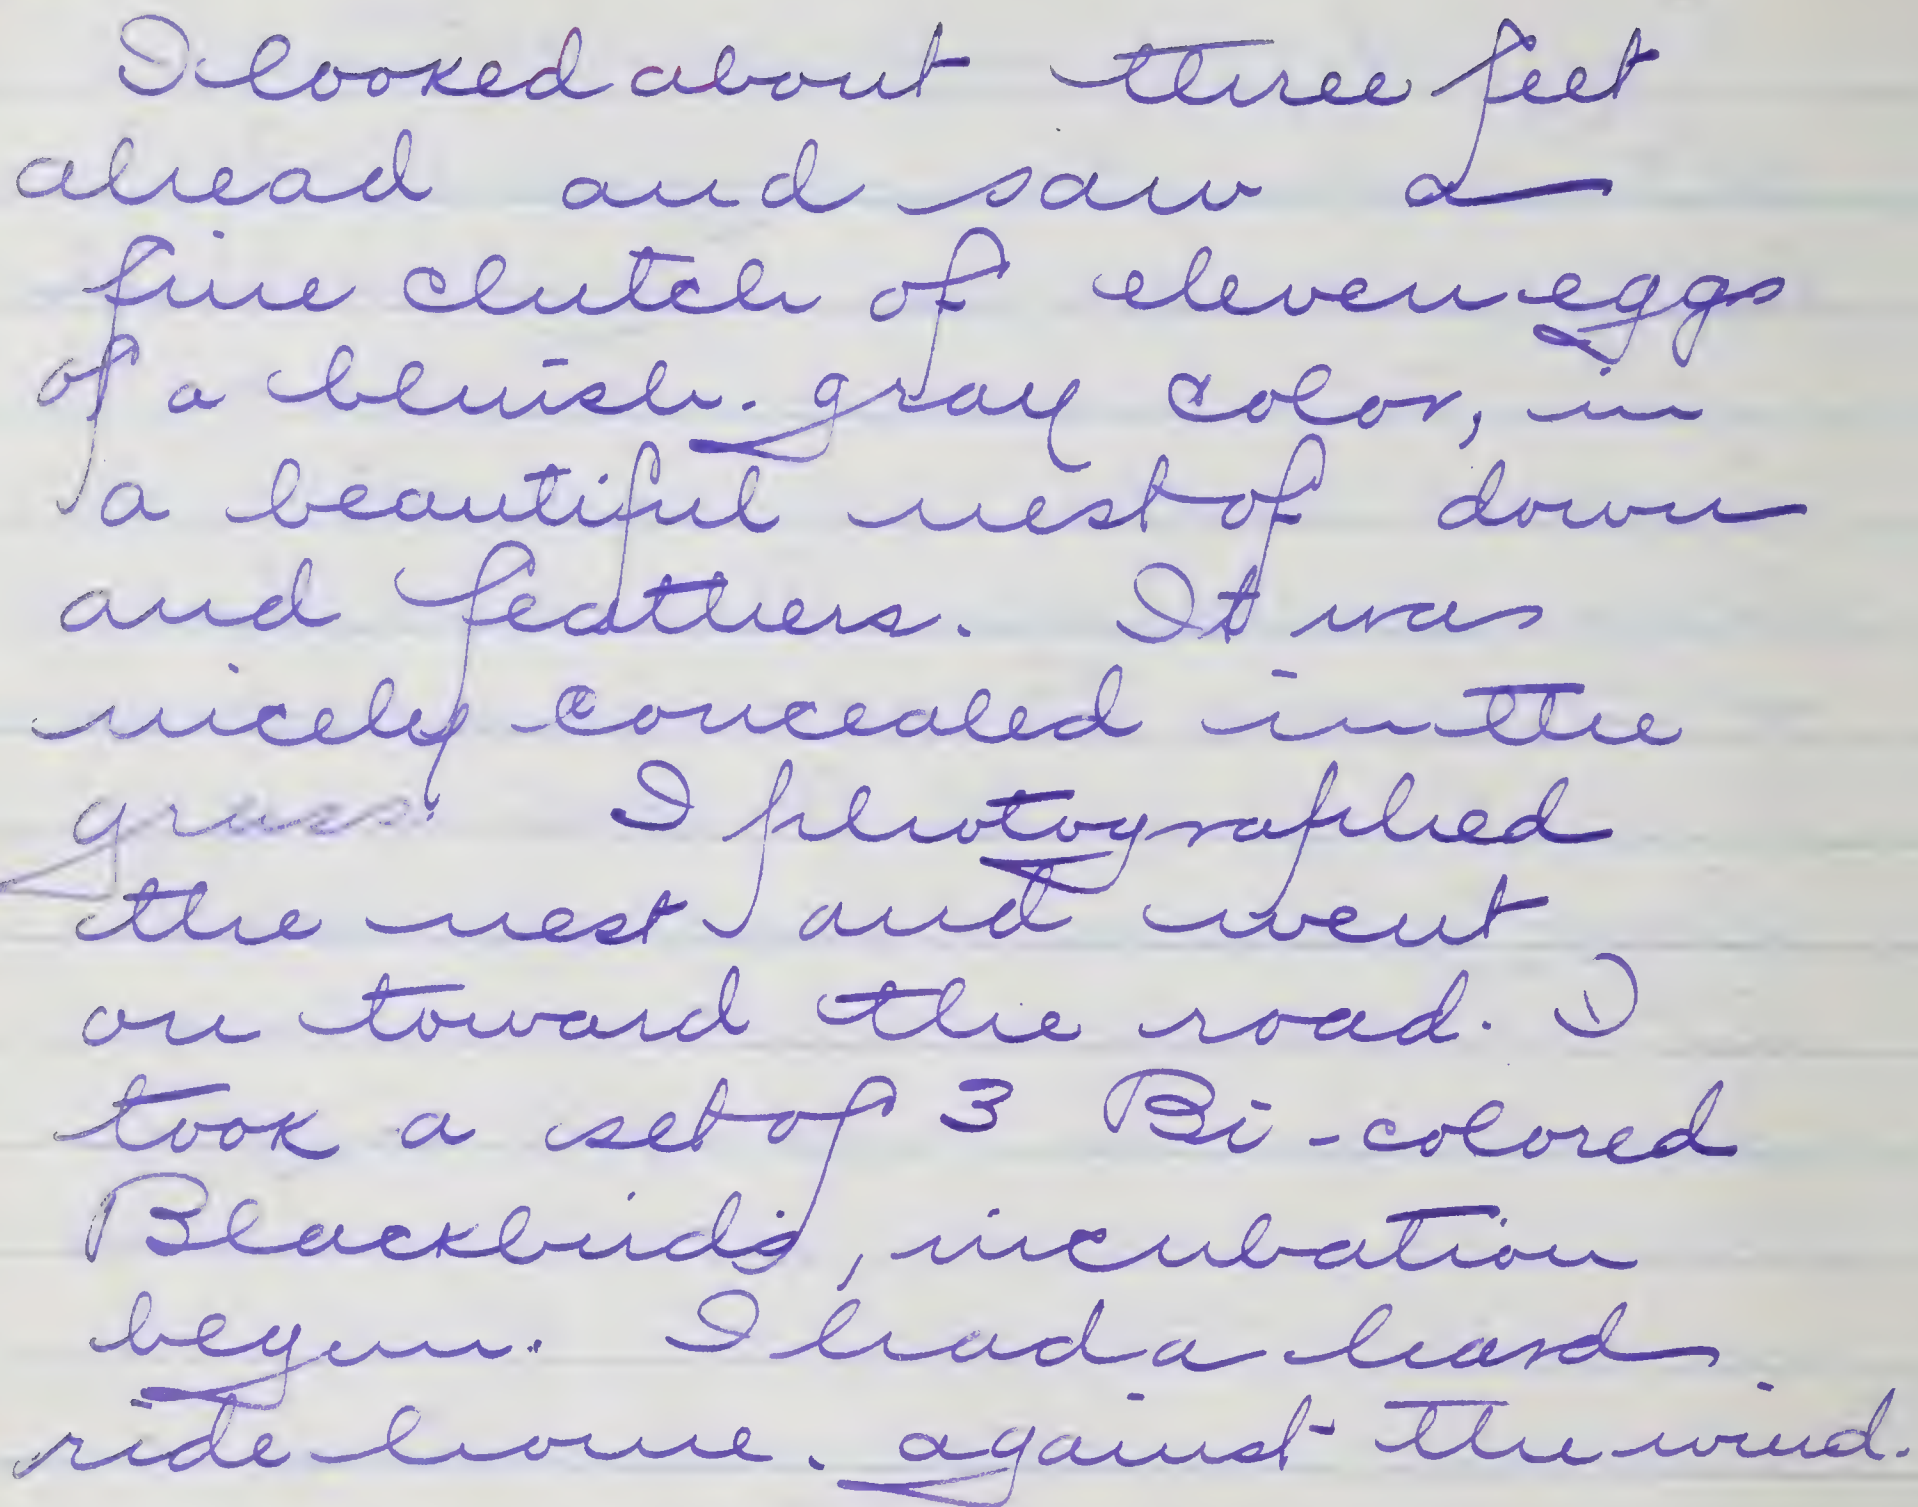 I looked about three feet
ahead and saw a
fine clutch of eleven eggs
of a bluish-gray color, in
a beautiful nest of down
and feathers. It was
nicely concealed in the
grass. I photographed
the nest and went
on toward the road. I
took a set of 3 Bi-colored
Blackbirds, incubation
begun. I had a hard
ride home. against the wind.